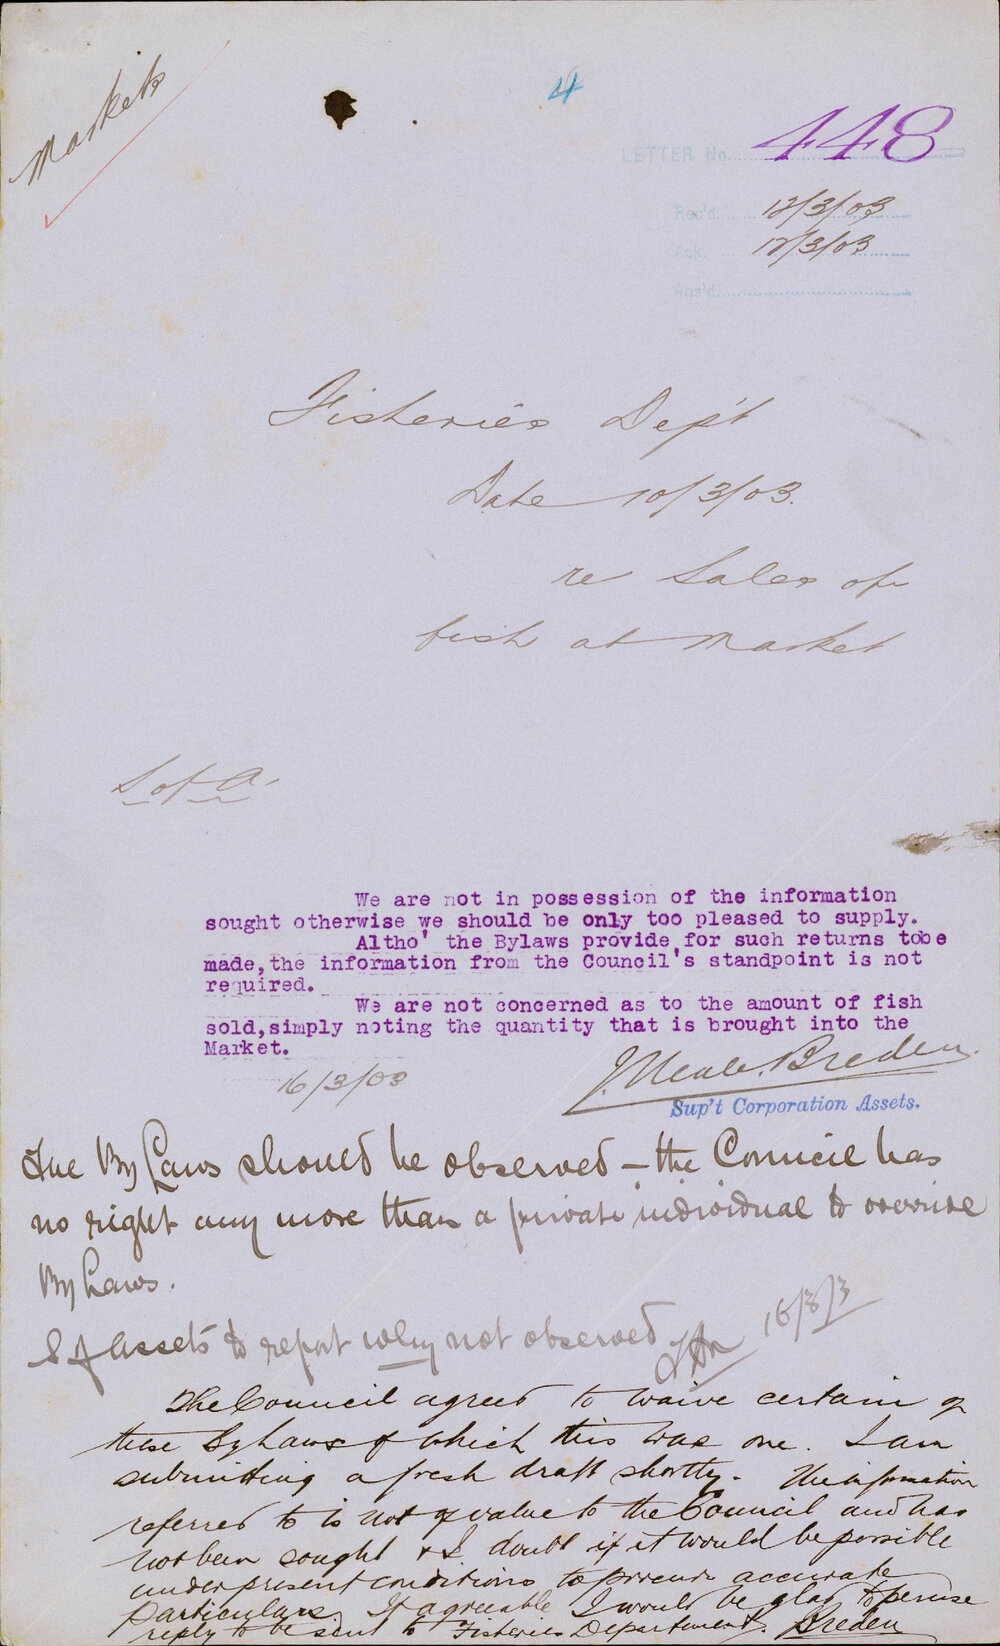 Markets
4
LETTER No. 448
Rec'd 12/3/03
Ack. 12/3/03
Ans'd
Fisheries Dep't
Date 10/3/03.
re Sales of
fish at Market
S of A.
We are not in possession of the information
sought otherwise we should be only too pleased to supply.
Altho' the Bylaws provide for such returns tobe
made,the information from the Council's standpoint is not
required.
We are not concerned as to the amount of fish
sold,simply noting the quantity that is brought into the
Market.
16/3/03
Breden.
Sup't Corporation Assets.
The By Laws should be observed – the Council has
no right any more than a private individual to override
By Laws.
S of Assets to report why not observed
16/3/3
The Council agreed to waive certain of
these By Laws of which this was one. I am
submitting a fresh draft shortly. The information
referred to is not of value to the Council and has
not been sought & I doubt if it would be possible
under present conditions to procure accurate
particulars. If agreeable I would be glad to peruse
reply to be sent to Fisheries Department. Breden